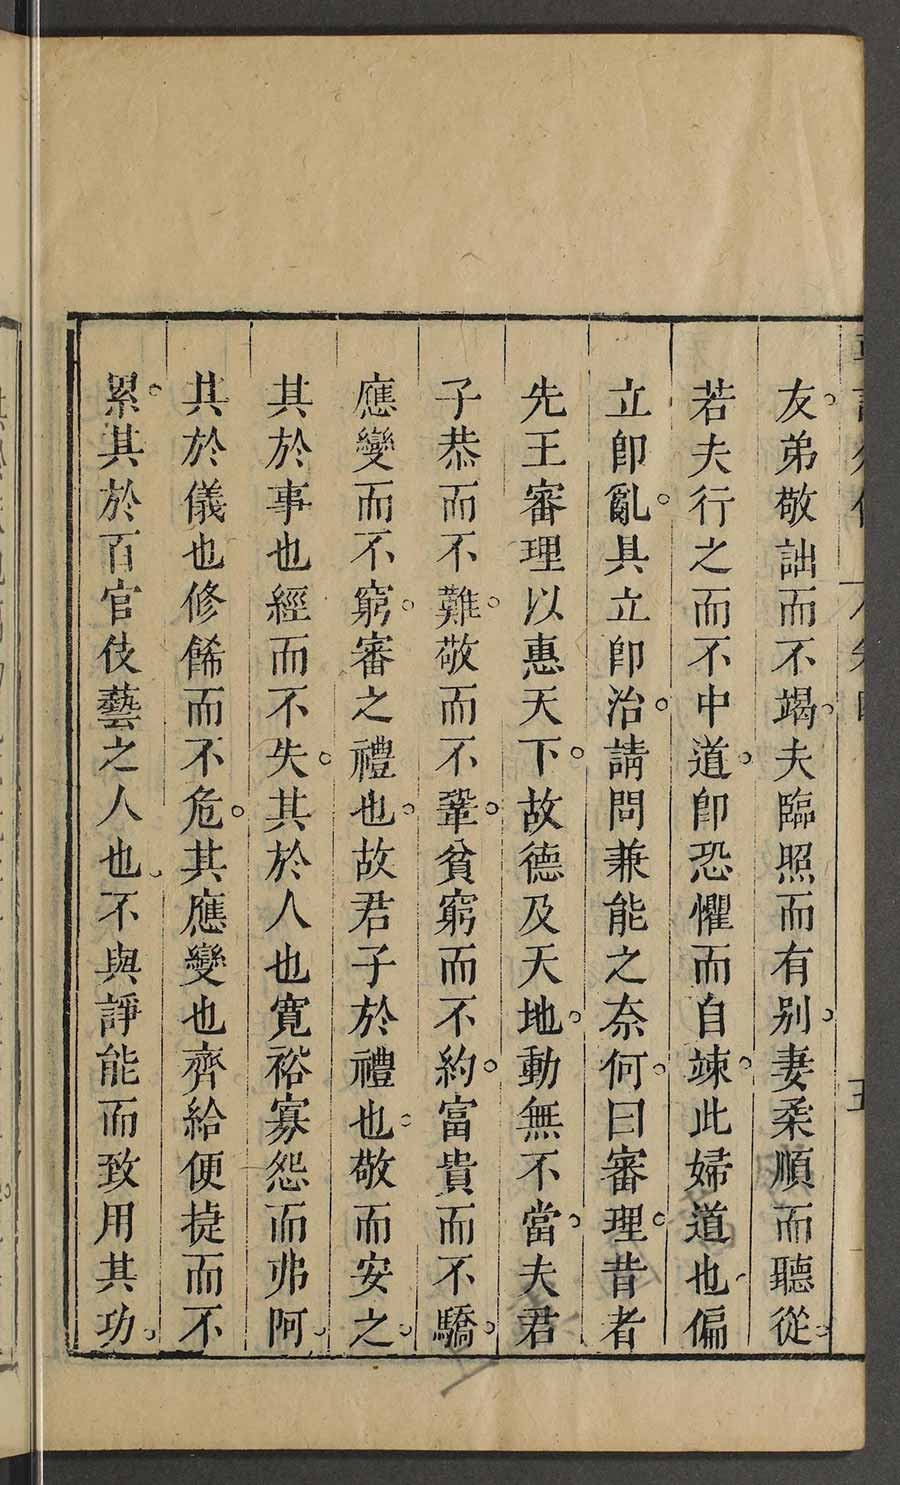 友弟敬詘而不竭。夫臨照而有别。妻柔順而聽從。
若夫行之而不中道。卽恐懼而自竦。此婦道也。偏
立卽亂。具立卽治。請問兼能之奈何。曰審理。昔者
先王審理以惠天下。故德及天地。動無不當。夫君
子恭而不難。敬而不鞏。貧窮而不約。富貴而不驕。
應變而不窮。審之禮也。故君子於禮也。敬而安之。
其於事也經而不失。其於人也寬裕寡怨而弗阿。
其於儀也修餙而不危。其應變也齊給便捷而不
累。其於百官伎藝之人也。不與諍能而致用其功。